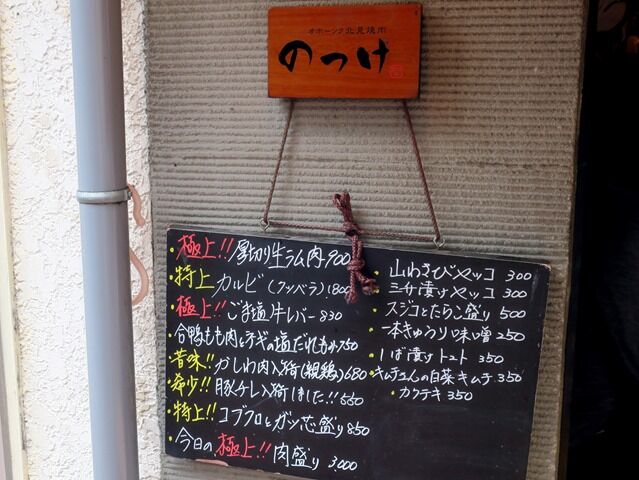 オホーツク北見焼肉
のっけ
・極上!! 厚切り生ラム肉 900
・特上 カルビ (フツバラ) 1800
・極上!! ごま塩牛レバー 830
合鴨もも肉とネギの塩だれもみ 750
・昔味!! かしわ肉入荷 (親鶏) 680
・希少!! 豚チレ入荷しました!! 550
・特上!! コブクロとガツ芯盛り 850
・今日の極上!! 肉盛り 3,000
・山わさびヤッコ 300
・ミサ漬けヤッコ 300
・スジコとたらこ盛り 500
・一本きゅうり味噌 250
・しば漬けトマト 350
・キムチュんの白菜キムチ 350
・カクテキ 350